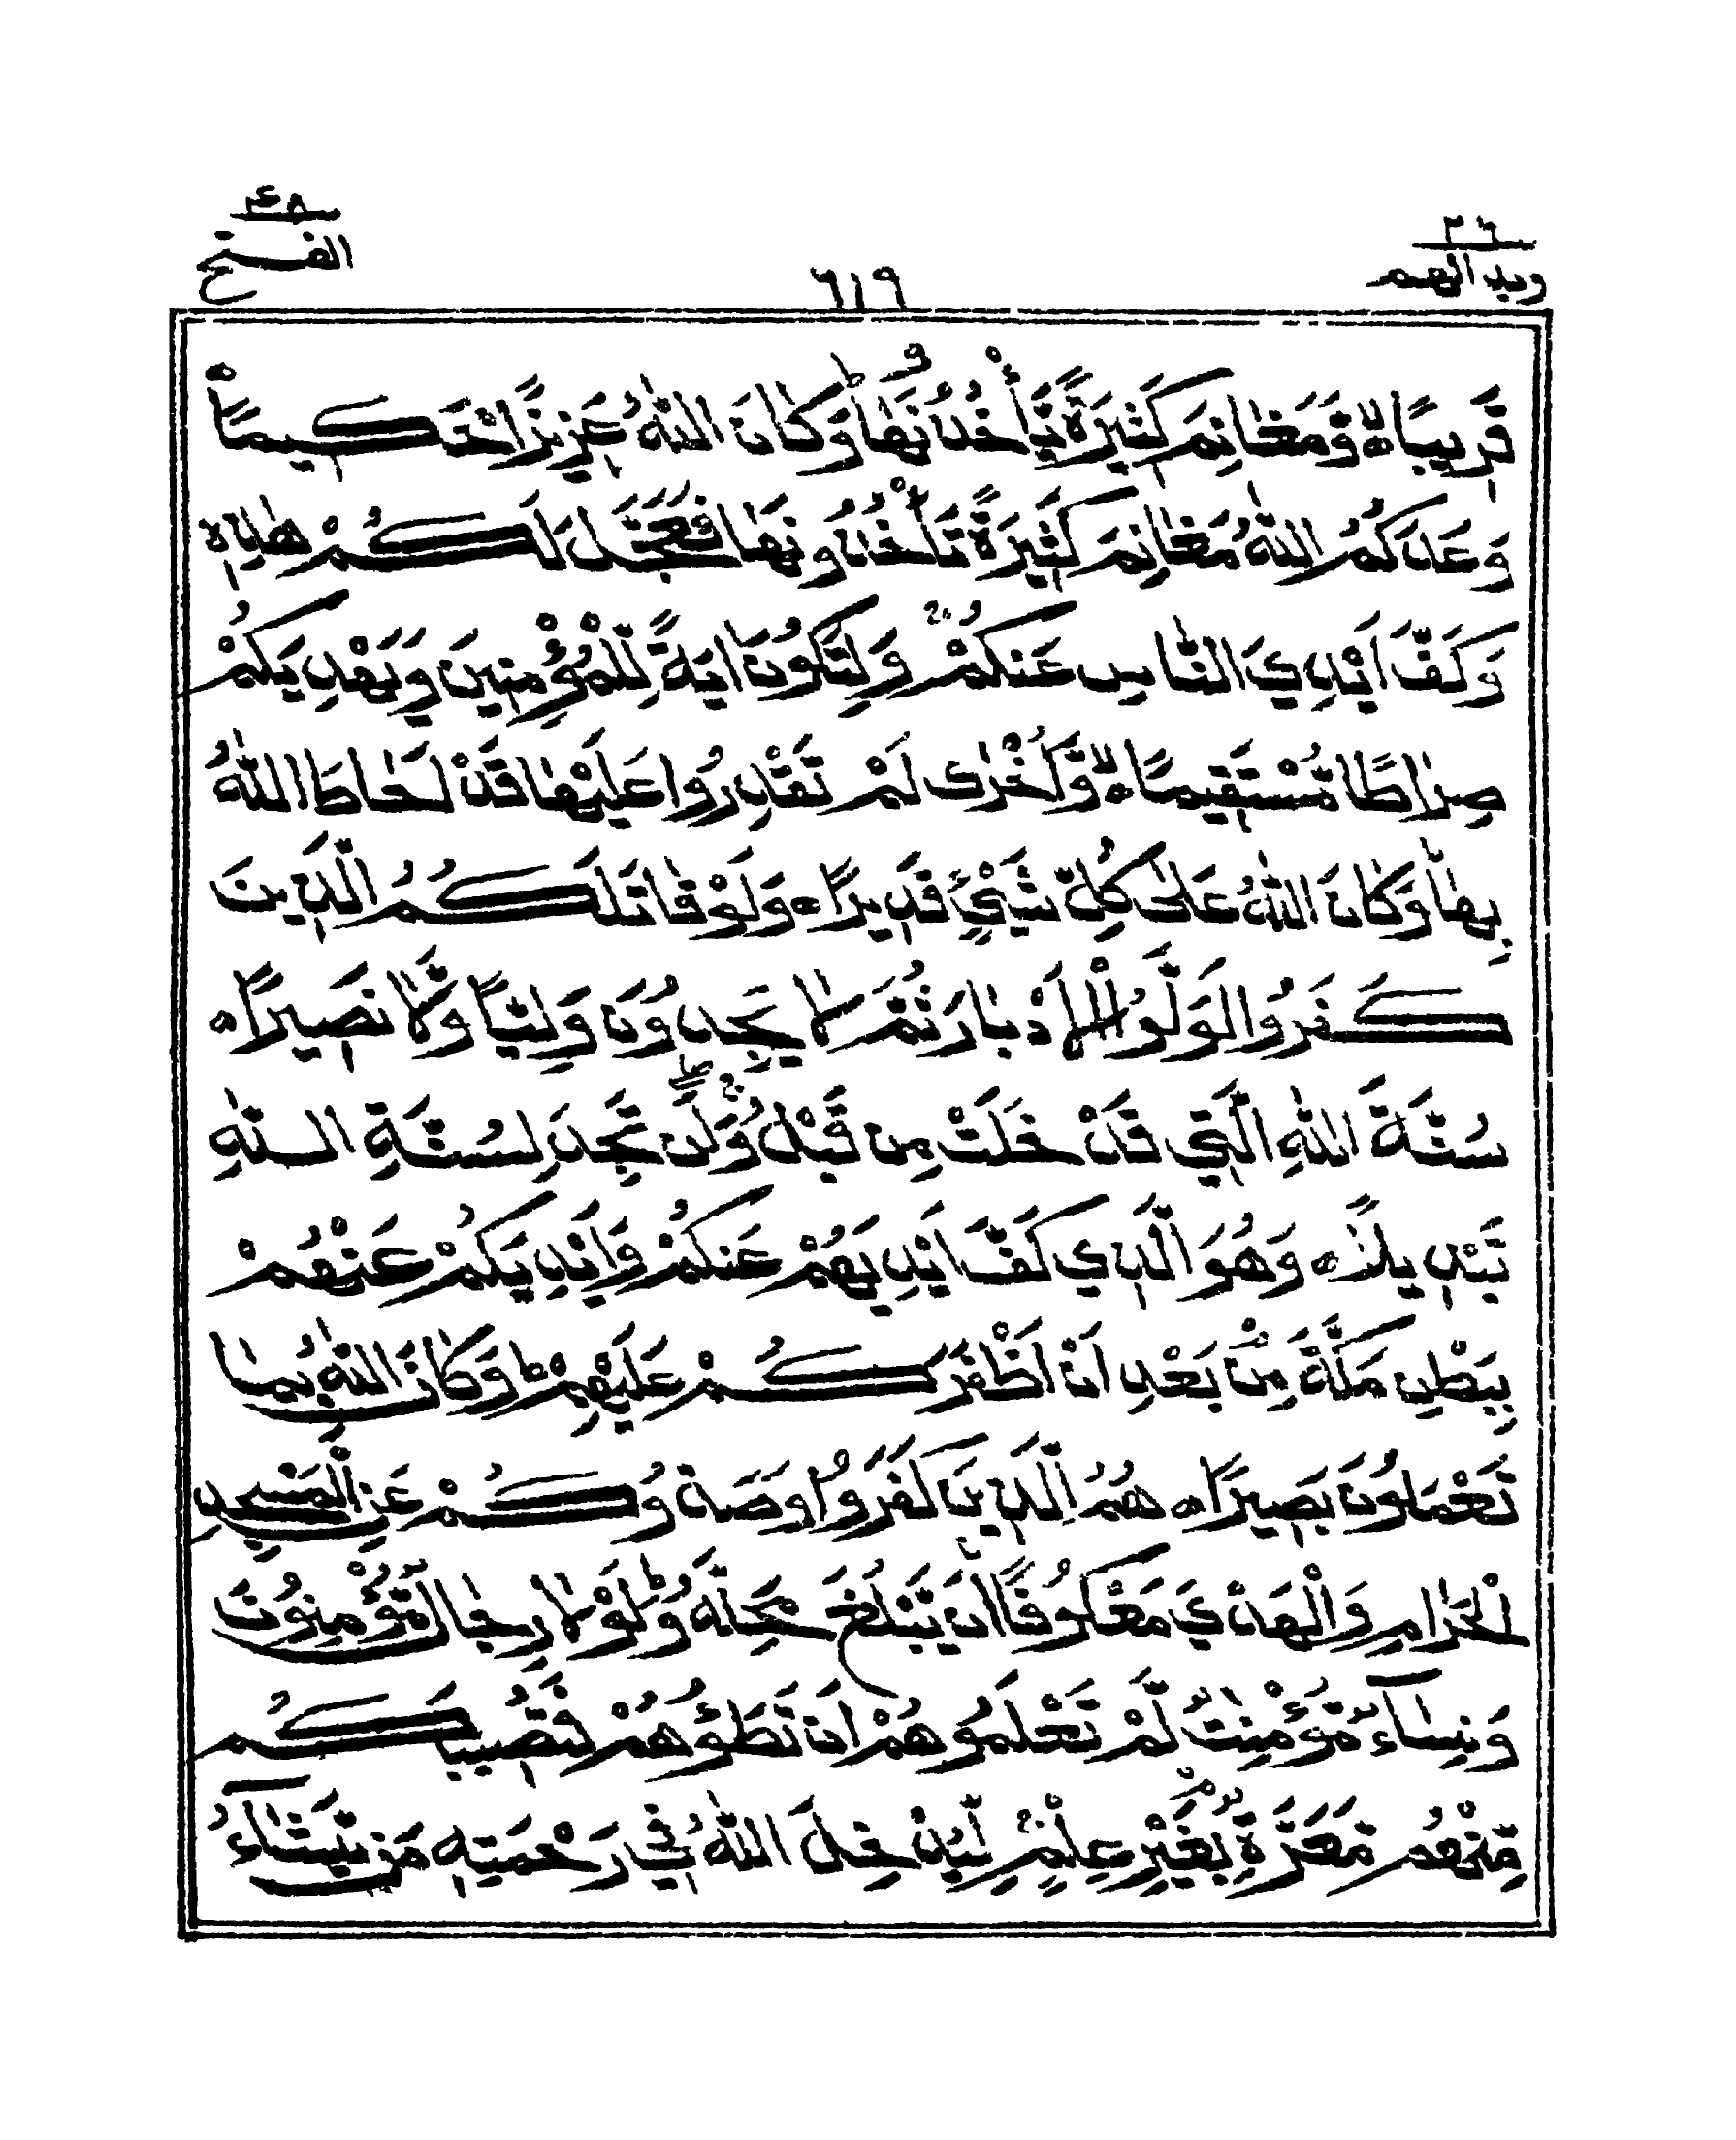 ٤٨
الفتح
٢٦
٦١٩
قَرِيبًا ۙ وَّمَغَانِمَ كَثِيرَةً يَّأْخُذُونَهَا ۗ وَكَانَ اللّٰهُ عَزِيزًا حَكِيمًا
وَعَدَكُمُ اللّٰهُ مَغَانِمَ كَثِيرَةً تَأْخُذُونَهَا فَعَجَّلَ لَكُمْ هٰذِهٖ
وَكَفَّ اَيْدِيَ النَّاسِ عَنكُمْ ۚ وَلِتَكُونَ اٰيَةً لِّلْمُؤْمِنِينَ وَيَهْدِيَكُمْ
صِرَاطًا مُّسْتَقِيمًا ۙ وَّاُخْرٰى لَمْ تَقْدِرُوا عَلَيْهَا قَدْ اَحَاطَ اللّٰهُ
بِهَا ۗ وَكَانَ اللّٰهُ عَلٰى كُلِّ شَيْءٍ قَدِيرًا ۝ وَلَوْ قَاتَلَكُمُ الَّذِينَ
كَفَرُوا لَوَلَّوُا الْاَدْبَارَ ثُمَّ لَا يَجِدُونَ وَلِيًّا وَّلَا نَصِيرًا ۝
سُنَّةَ اللّٰهِ الَّتِي قَدْ خَلَتْ مِن قَبْلُ ۚ وَلَن تَجِدَ لِسُنَّةِ اللّٰهِ
تَبْدِيلًا ۝ وَهُوَ الَّذِي كَفَّ اَيْدِيَهُمْ عَنكُمْ وَاَيْدِيَكُمْ عَنْهُمْ
بِبَطْنِ مَكَّةَ مِنۢ بَعْدِ اَنْ اَظْفَرَكُمْ عَلَيْهِمْ ۗ وَكَانَ اللّٰهُ بِمَا
تَعْمَلُونَ بَصِيرًا ۝ هُمُ الَّذِينَ كَفَرُوا وَصَدُّوكُمْ عَنِ الْمَسْجِدِ
الْحَرَامِ وَالْهَدْيَ مَعْكُوفًا اَن يَّبْلُغَ مَحِلَّهٗ ۗ وَلَوْلَا رِجَالٌ مُّؤْمِنُونَ
وَنِسَآءٌ مُّؤْمِنٰتٌ لَّمْ تَعْلَمُوهُمْ اَن تَطَـُٔوهُمْ فَتُصِيبَكُم
مِّنْهُم مَّعَرَّةٌۢ بِغَيْرِ عِلْمٍ ۚ لِّيُدْخِلَ اللّٰهُ فِي رَحْمَتِهٖ مَن يَّشَآءُ